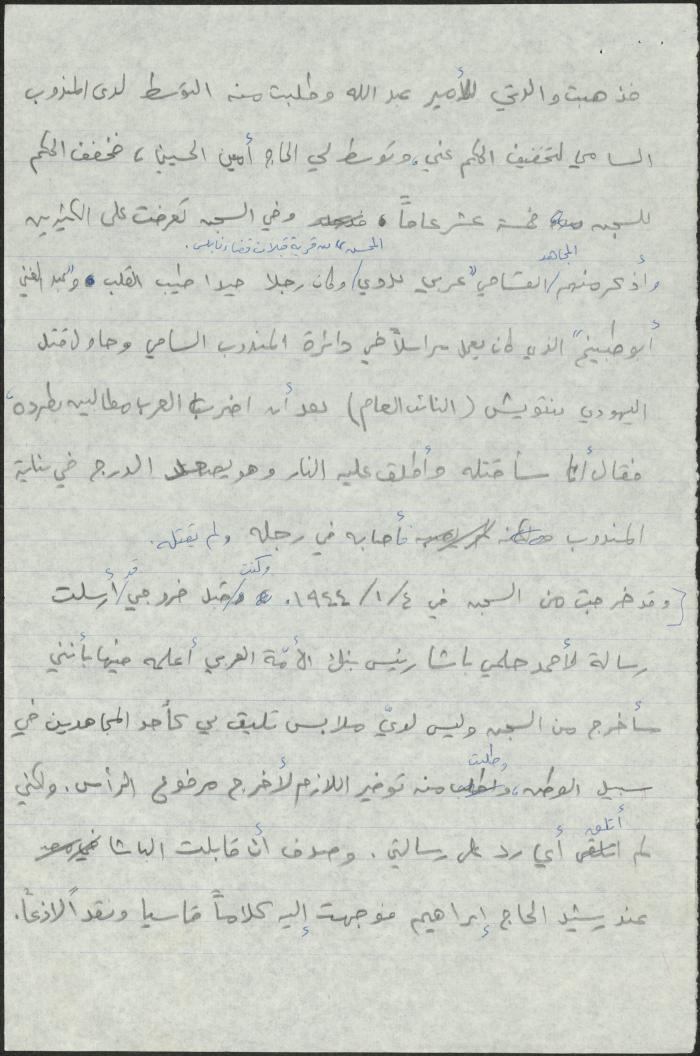 فذهبت والدتي للأمير عبد الله وطلبت منه التوسط لدى المندوب
السامي لتخفيف الحكم عني، وتوسط لي الحاج أمين الحسيني، فخفف الحكم
للسجن خمسة عشر عاماً، وفي السجن تعرفت على الكثيرين
المجاهد من قرية فلان قضاء نابلس.
وأذكر منهم / القسامي "عربي بدوي / وكان رجلا جيدا طيب القلب، و"عبد الغني
أبو طبيخ" الذي كان يعمل مراسلاً في دائرة المندوب السامي وحاول قتل
اليهودي بنتويش (النائب العام) بعد أن اضرب العرب مطالبين بطرده،
فقال أنا سأقتله وأطلق عليه النار وهو يصعد الدرج في بناية
المندوب فأصابه في رجله ولم يقتله.
وكنت قد
وقد خرجت من السجن في ٤/١/١٩٤٤. وقبل خروجي / أرسلت
رسالة لأحمد حلمي باشا رئيس بنك الأمّة العربي أعلمه فيها بأنني
سأخرج من السجن وليس لديّ ملابس تليق بي كأحد المجاهدين في
وطلبت
سبيل الوطن، منه توفير اللازم لأخرج مرفوع الرأس. ولكني
أتلق
لم أي رد على رسالتي. وصدف أن قابلت الباشا
عند رشيد الحاج إبراهيم فوجهت إليه كلاماً قاسيا ونقداً لاذعاً.